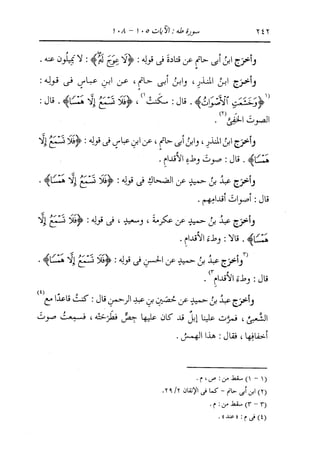 ٢٤٢ سورة طه : الآيات ١٠٥ - ١٠٨
وأخرج ابنُ أبى حاتمٍ عن قتادةَ فى قولِه : ﴿لَا عِوَجَ لَهُ﴾ : لا يَميلون عنه .
وأخرج ابنُ المنذرِ ، وابنُ أبى حاتمٍ ، عن ابنِ عباسٍ فى قولِه :
(١)﴿وَخَشَعَتِ الْأَصْوَاتُ﴾ . قال : سكَنت(١) ، ﴿فَلَا تَسْمَعُ إِلَّا هَمْسًا﴾ . قال :
الصوتَ الخفىَّ(٢) .
وأخرج ابنُ المنذرِ ، وابنُ أبى حاتمٍ ، عن ابنِ عباسٍ فى قولِه : ﴿فَلَا تَسْمَعُ إِلَّا
هَمْسًا﴾ . قال : صوتَ وطءِ الأقدامِ .
وأخرج عبدُ بنُ حميدٍ عن الضحاكِ فى قولِه : ﴿فَلَا تَسْمَعُ إِلَّا هَمْسًا﴾ .
قال : أصواتَ أقدامِهم .
وأخرج عبدُ بنُ حميدٍ عن عكرمةَ ، وسعيدٍ ، فى قولِه : ﴿فَلَا تَسْمَعُ إِلَّا
هَمْسًا﴾ . قالا : وطءَ الأقدامِ .
(٣)وأخرج عبدُ بنُ حميدٍ عن الحسنِ فى قولِه : ﴿فَلَا تَسْمَعُ إِلَّا هَمْسًا﴾ .
قال : وطءَ الأقدامِ(٣) .
وأخرج عبدُ بنُ حميدٍ عن حُصينِ بنِ عبدِ الرحمنِ قال : كنتُ قاعدًا مع(٤)
الشعبىِّ ، فمرَّت علينا إبلٌ قد كان عليها جِصٌّ فطرَحَته ، فسمِعتُ صوتَ
أخفافِها ، فقال : هذا الهمسُ .
(١ - ١) سقط من : ص ، م .
(٢) ابن أبى حاتم - كما فى الإتقان ٢/ ٢٩.
(٣ - ٣) سقط من : م .
(٤) فى م : « عند » .